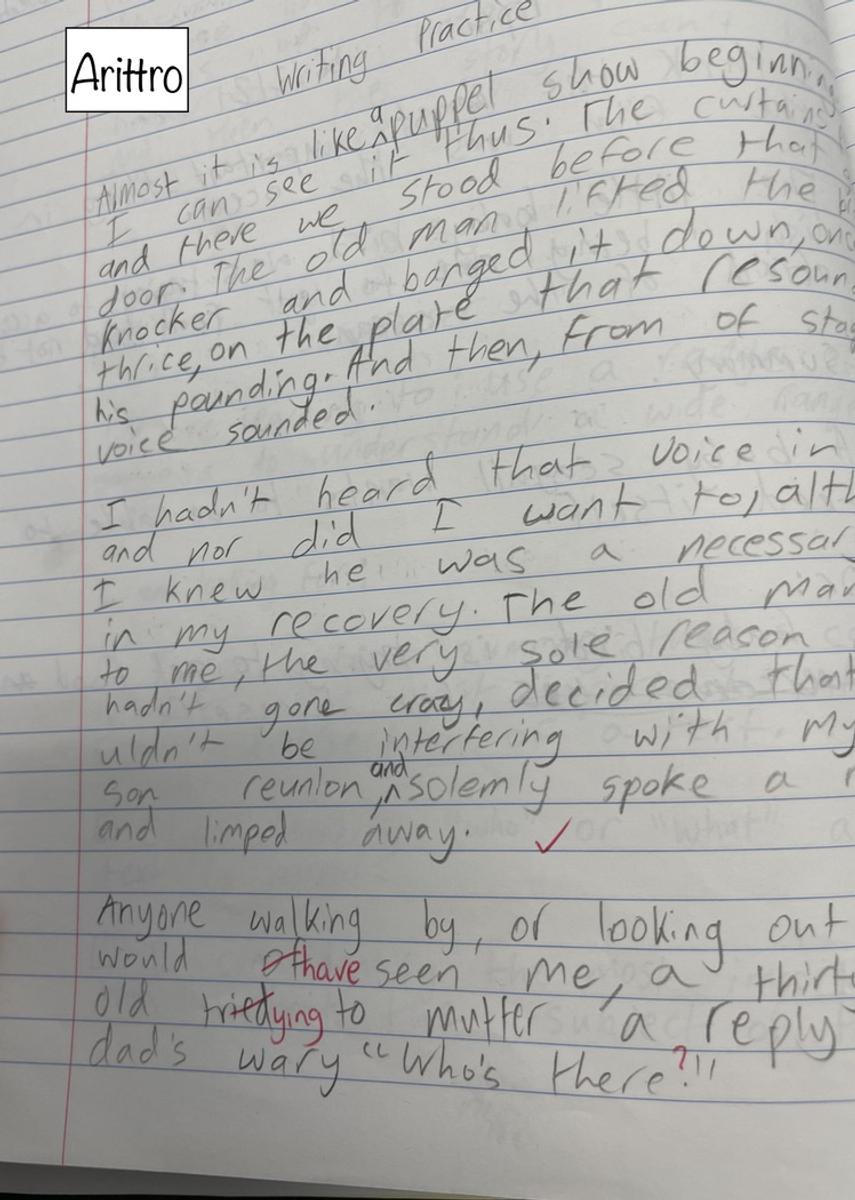 Arittro
Writing Practice
Almost it is like a puppel show beginnin
I can see it thus. The curtains
and there we stood before that
door. The old man lifted the
knocker and banged it down, onc
thrice, on the plate that resoun
his pounding. And then, from of sta
voice sounded.
I hadn't heard that voice in
and nor did I want to, alth
I knew he was a necessar
in my recovery. The old man
to me, the very sole reason
hadn't gone crazy, decided that
uldn't be interfering with my
son reunion, and solemly spoke a
and limped away.
Anyone walking by, or looking out
would of have seen me, a thirte
old tried trying to mutter a reply
dad's wary "Who's there?"